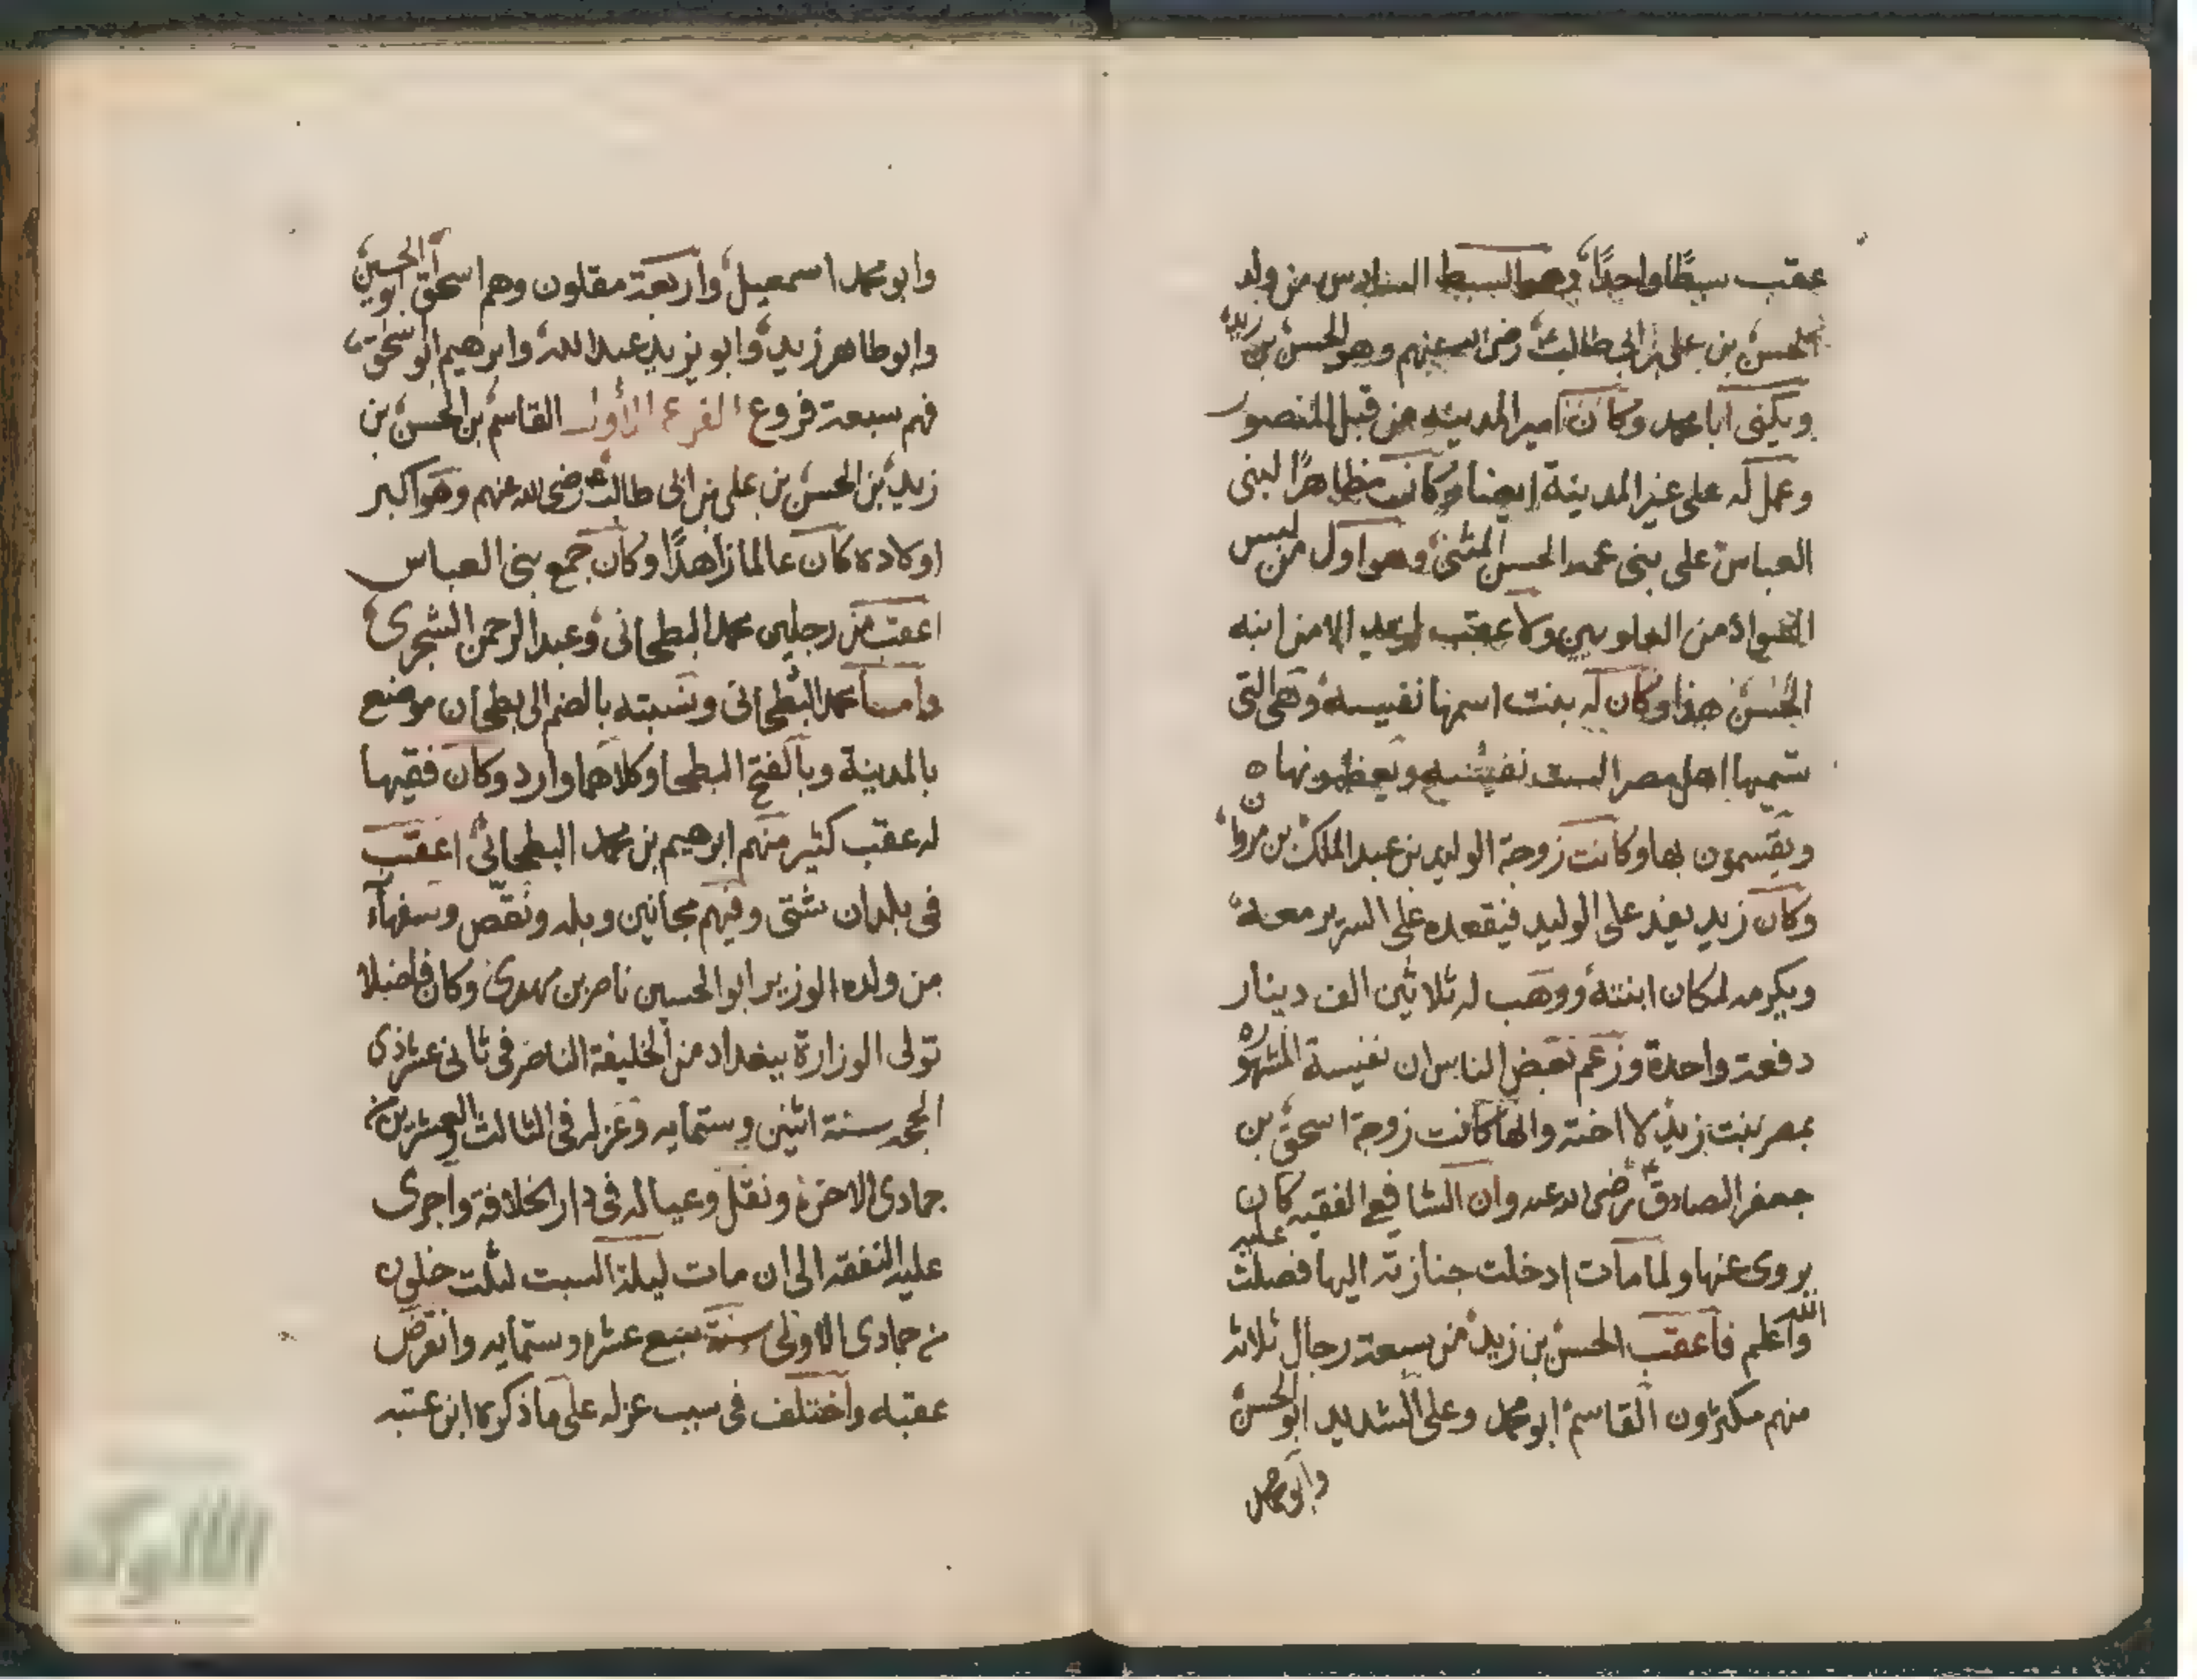 عقب سبطًا واحدًا وهو السبط السادس من ولد
الحسن بن على بن ابى طالب رضى الله عنهم وهو الحسن بن زيد
ويكنى ابا محمد وكان امير المدينه من قبل المنصور
وعمل له على غير المدينة ايضا وكان مظاهرًا لبنى
العباس على بنى عمه الحسن المثنى وهو اول من لبس
السواد من العلويين ولا عقب لزيد الا من ابنه
الحسن هذا وكان له بنت اسمها نفيسه وهى التى
تسميها اهل مصر الست نفيسه ويعظمونها ه
ويقسمون بها وكانت زوجة الوليد بن عبد الملك بن مروان
وكان زيد يفد على الوليد فيقعده على السرير معه
ويكرمه لمكان ابنته ووهب له ثلاثين الف دينار
دفعة واحدة وزعم بعض الناس ان نفيسة المشهوره
بمصر بنت زيد لا اخته وانها كانت زوجة اسحق بن
جعفر الصادق رضى الله عنه وان الشافعى الفقيه كان
يروى عنها ولما مات ادخلت جنازته اليها فصلت عليه
والله اعلم فاعقب الحسن بن زيد من سبعة رجال ثلاثه
منهم مكثرون القاسم ابو محمد وعلى الشديد ابو الحسن
وابو محمد
وابو محمد اسمعيل واربعة مقلون وهم اسحق ابو الحسين
وابو طاهر زيد وابو يزيد عبد الله وابرهيم ابو اسحق
فهم سبعة فروع الفرع الأول القاسم بن الحسن بن
زيد بن الحسن بن على بن ابى طالب رضى الله عنهم وهو اكبر
اولاده كان عالما زاهدًا وكان جمع بنى العباس
اعقب من رجلين محمد البطحانى وعبد الرحمن الشجرى
وامـا محمد البطحانى ونسبته بالضم الى بطحان موضع
بالمدينة وبالفتح البطحا وكلاهما وارد وكان فقيها
له عقب كثير منهم ابرهيم بن محمد البطحانى اعقب
فى بلدان شتى وفيهم مجانين وبله ونقص وسفهآء
من ولده الوزير ابو الحسين ناصر بن مهدى وكان فاضلا
تولى الوزارة ببغداد من الخليفة الناصر فى ثانى عشر ذى
الحجه سنة اثنين وستمايه وعزله فى الثالث والعشرين من
جمادى الاخره ونقل وعياله فى دار الخلافة واجرى
عليه النفقه الى ان مات ليلة السبت لثلث خلون
من جمادى الاولى سنة سبع عشره وستمايه وانقرض
عقبه واختلف فى سبب عزله على ما ذكره ابن عتبه